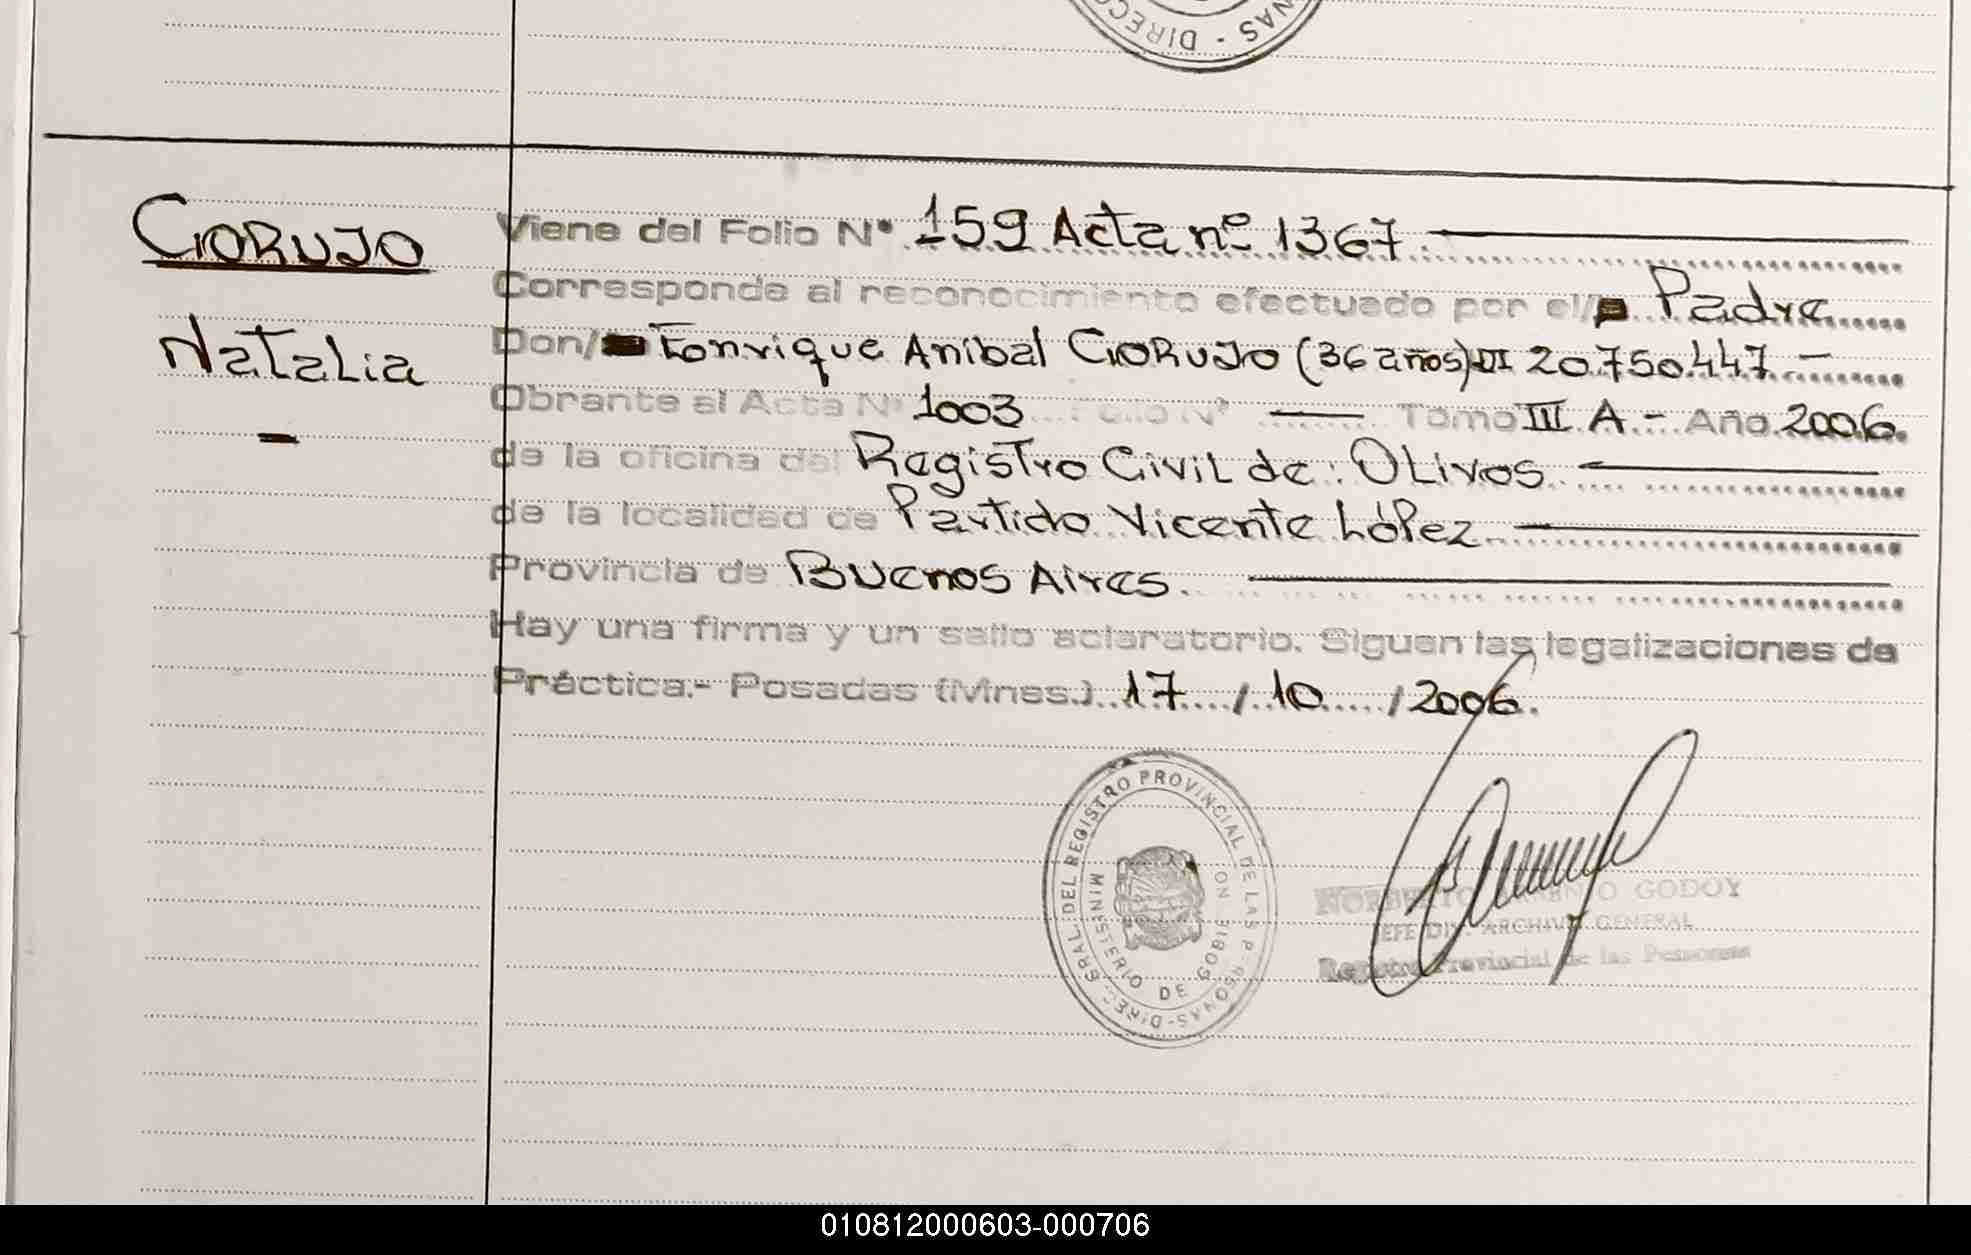 NAS - DIREC
GIORUJO
Natalia
-
Viene del Folio Nº 159 Acta nº 1367
Corresponde al reconocimiento efectuado por el/ Padre
Don/ Fonrique Anibal GIORUJO (36 años) DI 20.750.447 -
Obrante al Acta Nº 1003 Folio Nº — Tomo III A.- Año 2006.
de la oficina del Registro Civil de: Olivos
de la localidad de Partido Vicente López
Provincia de Buenos Aires.
Hay una firma y un sello aclaratorio. Siguen las legalizaciones de
Práctica.- Posadas (Mnes.) 17 / 10 / 2006.
DIREC. GRAL. DEL REGISTRO PROVINCIAL DE LAS PERSONAS -
MINISTERIO DE GOBIERNO
NORBERTO GODOY
JEFE DIV. ARCHIVO GENERAL
Registro Provincial de las Personas
010812000603-000706